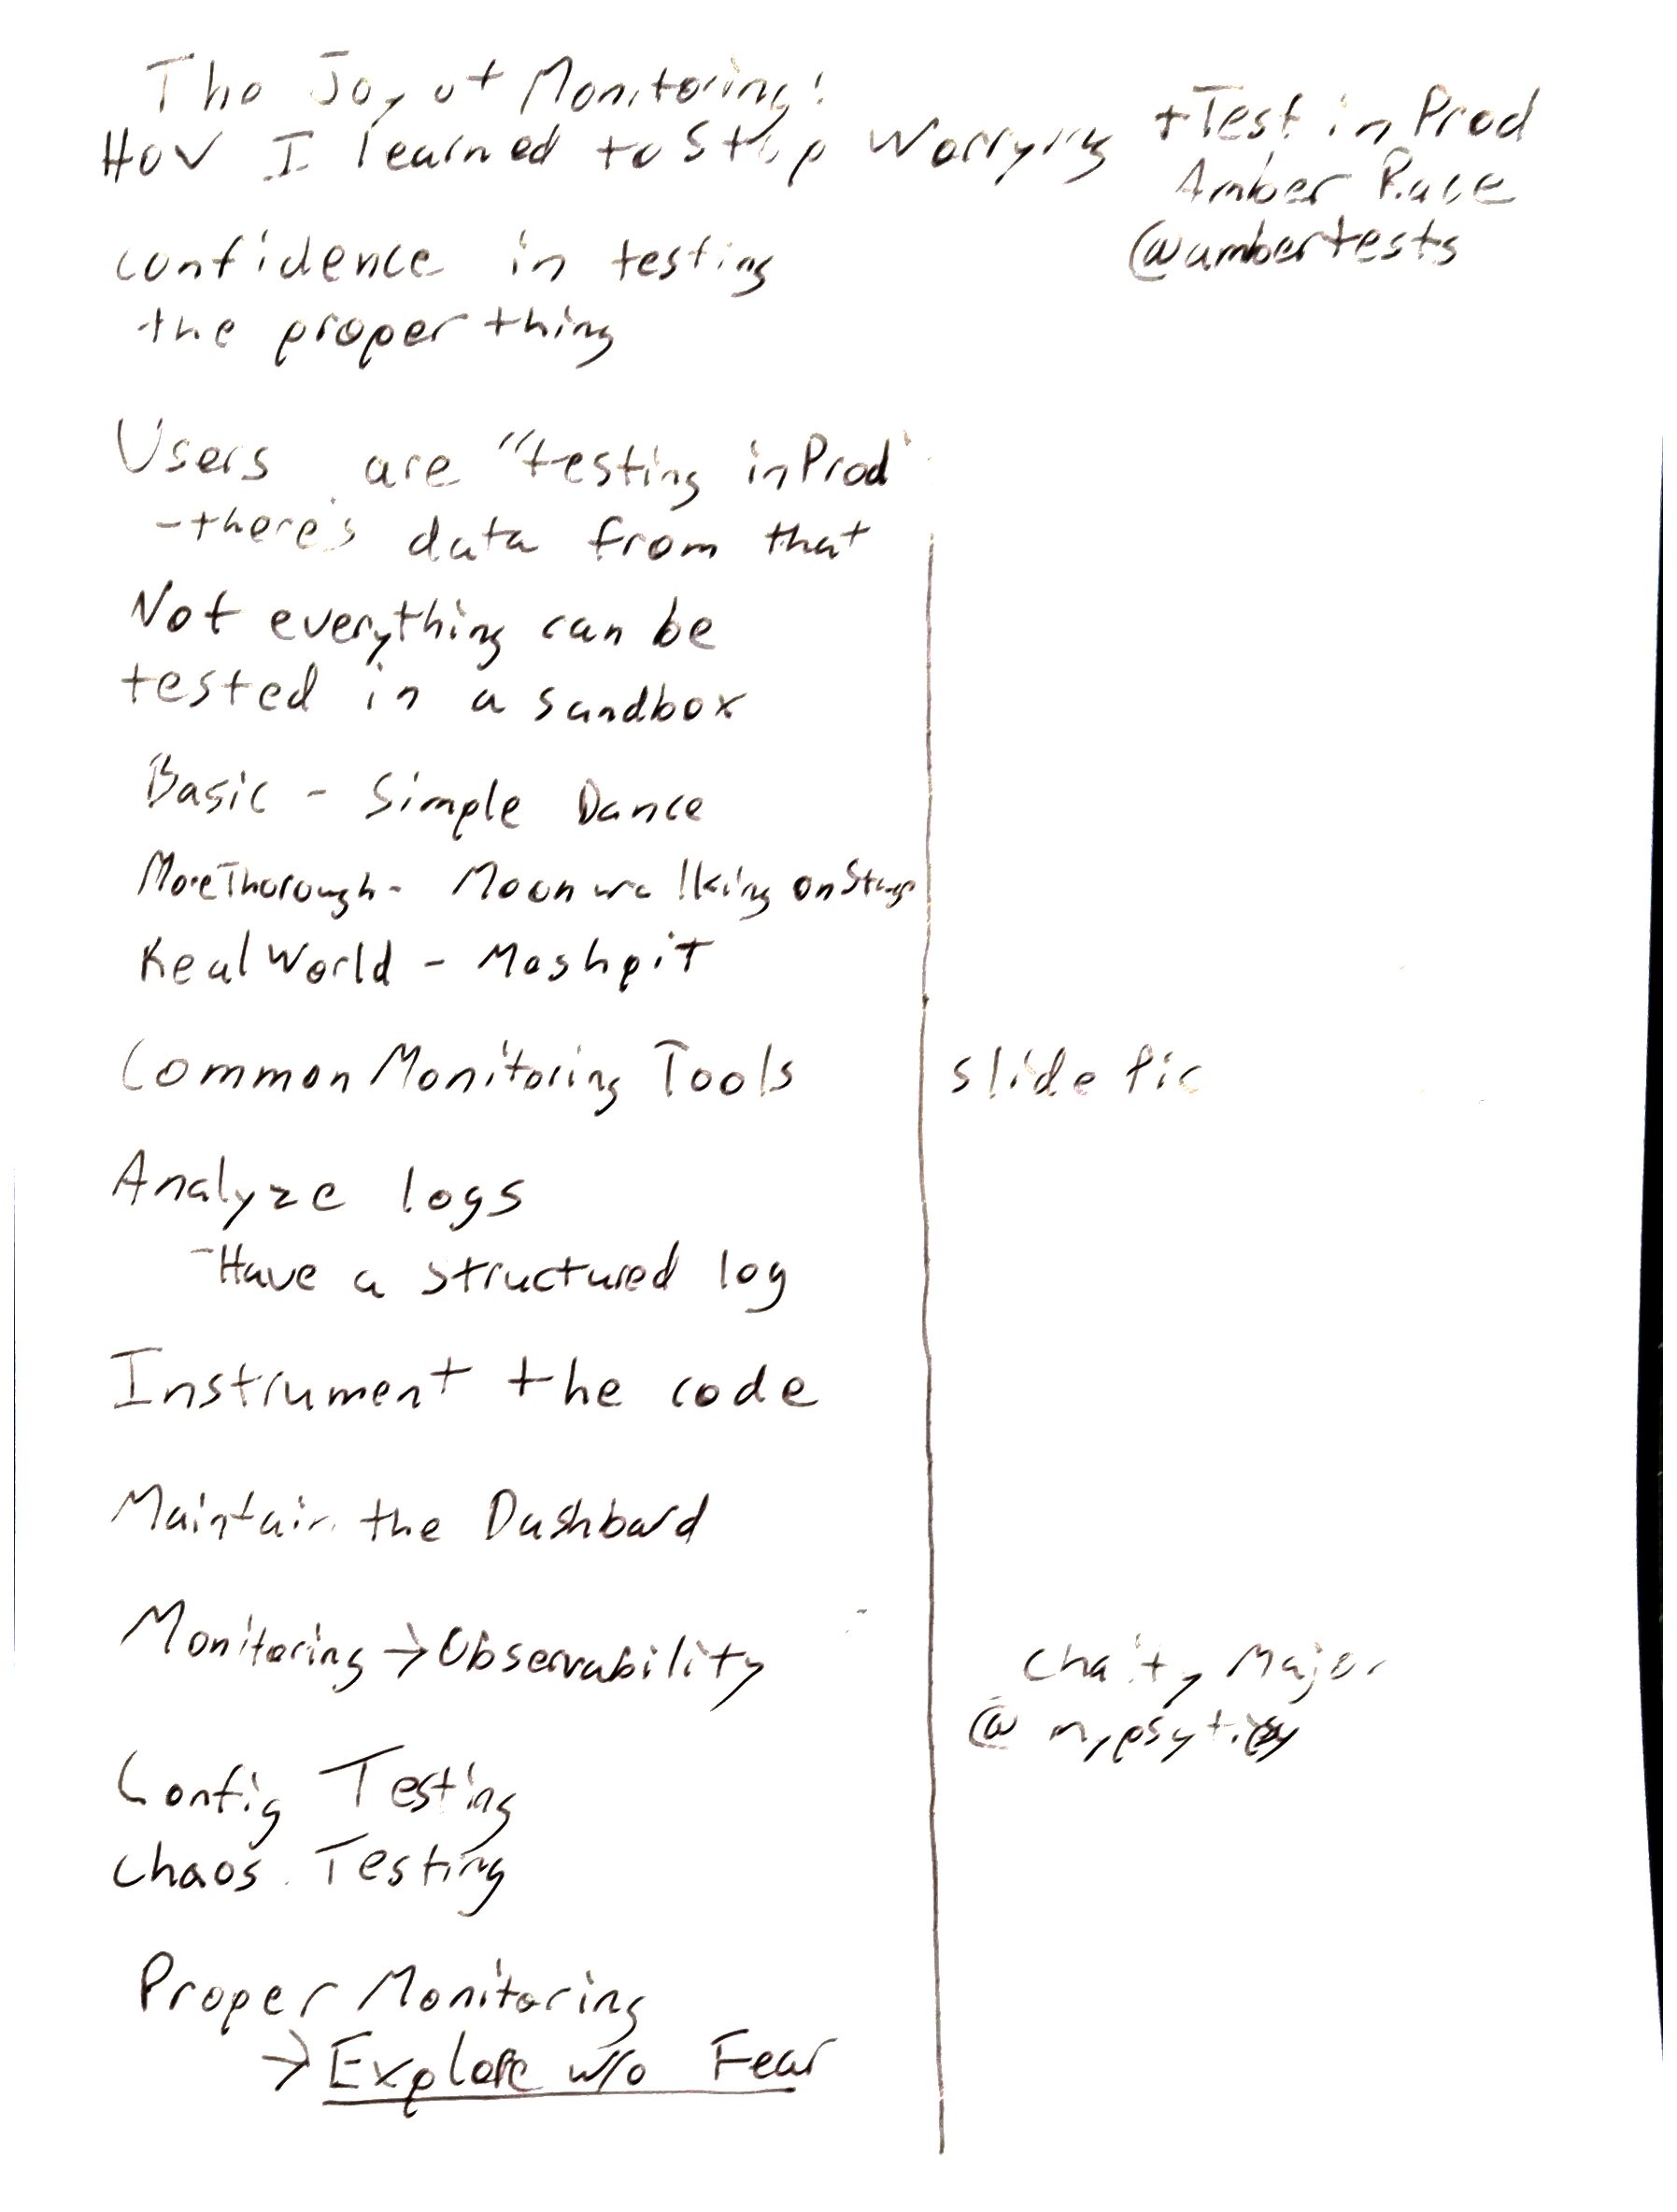 The Joy of Monitoring:
How I learned to Stop Worrying + Test in Prod
Amber Race
@ambertests
confidence in testing
the proper thing
Users are "testing in Prod"
- there's data from that
Not everything can be
tested in a sandbox
Basic - Simple Dance
More Thorough - Moonwalking on Stage
Real World - Moshpit
Common Monitoring Tools
slide pic
Analyze logs
- Have a structured log
Instrument the code
Maintain the Dashboard
Monitoring → Observability
Charity Major
@
Config Testing
Chaos Testing
Proper Monitoring
→ Explore w/o Fear